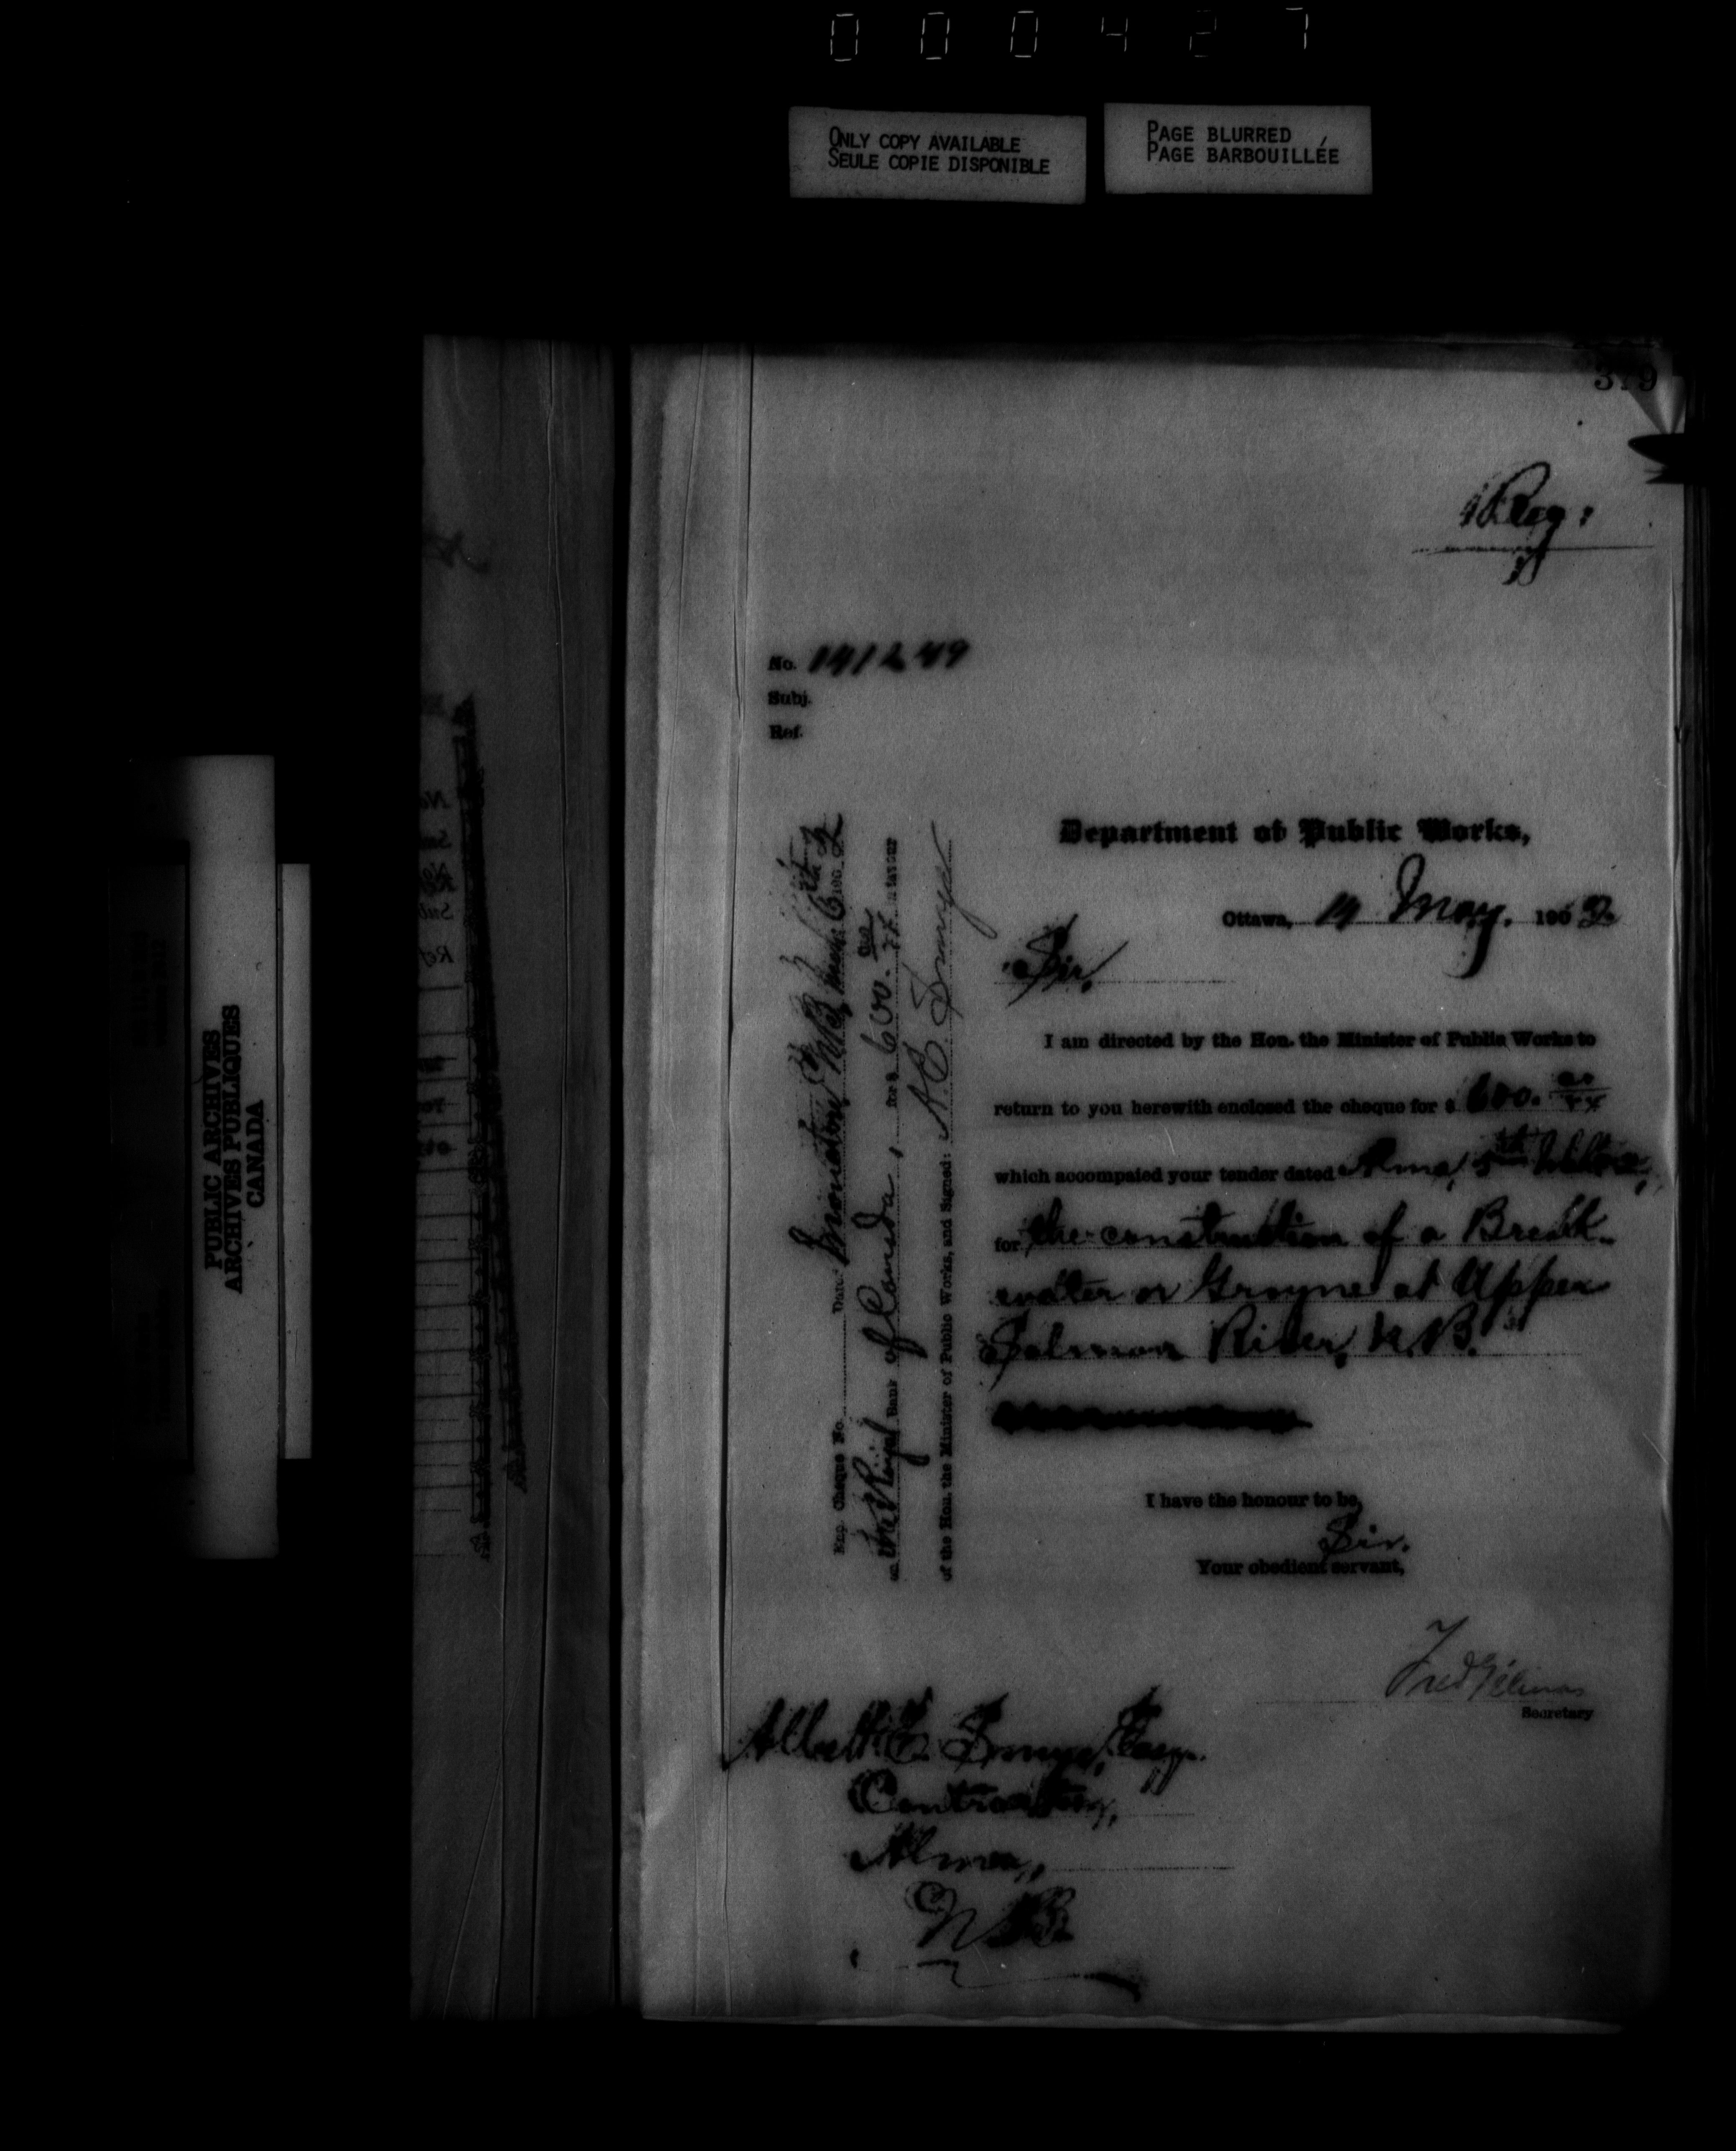 000427
ONLY COPY AVAILABLE
SEULE COPIE DISPONIBLE
PAGE BLURRED
PAGE BARBOUILLÉE
PUBLIC ARCHIVES
ARCHIVES PUBLIQUES
CANADA
379
Reg:
No. 141249
Subj.
Ref.
Department of Public Works,
Ottawa, 14 May. 1902
Sir,
I am directed by the Hon. the Minister of Public Works to
return to you herewith enclosed the cheque for $ 600. 00/xx
which accompaied your tender dated Alma, 5th
for the construction of a Break-
water or Groyne at Upper
Salmon River, N.B.
I have the honour to be,
Sir.
Your obedient servant,
Fred Gélinas
Secretary
Enc. Cheque No. Date Moncton N.B. 6th 1902
on the Royal Bank of Canada, for $ 600. 00/xx in favour
of the Hon. the Minister of Public Works, and Signed: A. E. Smye
Albert E. Smye, Esq.
Contractor,
Alma,
N.B.